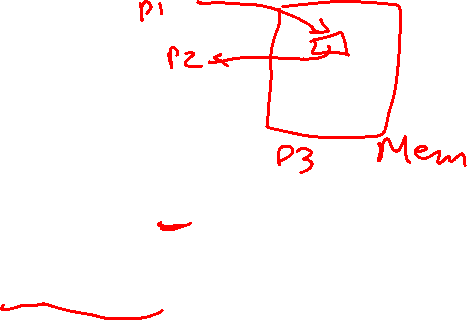 P1
P2
P3
Mem